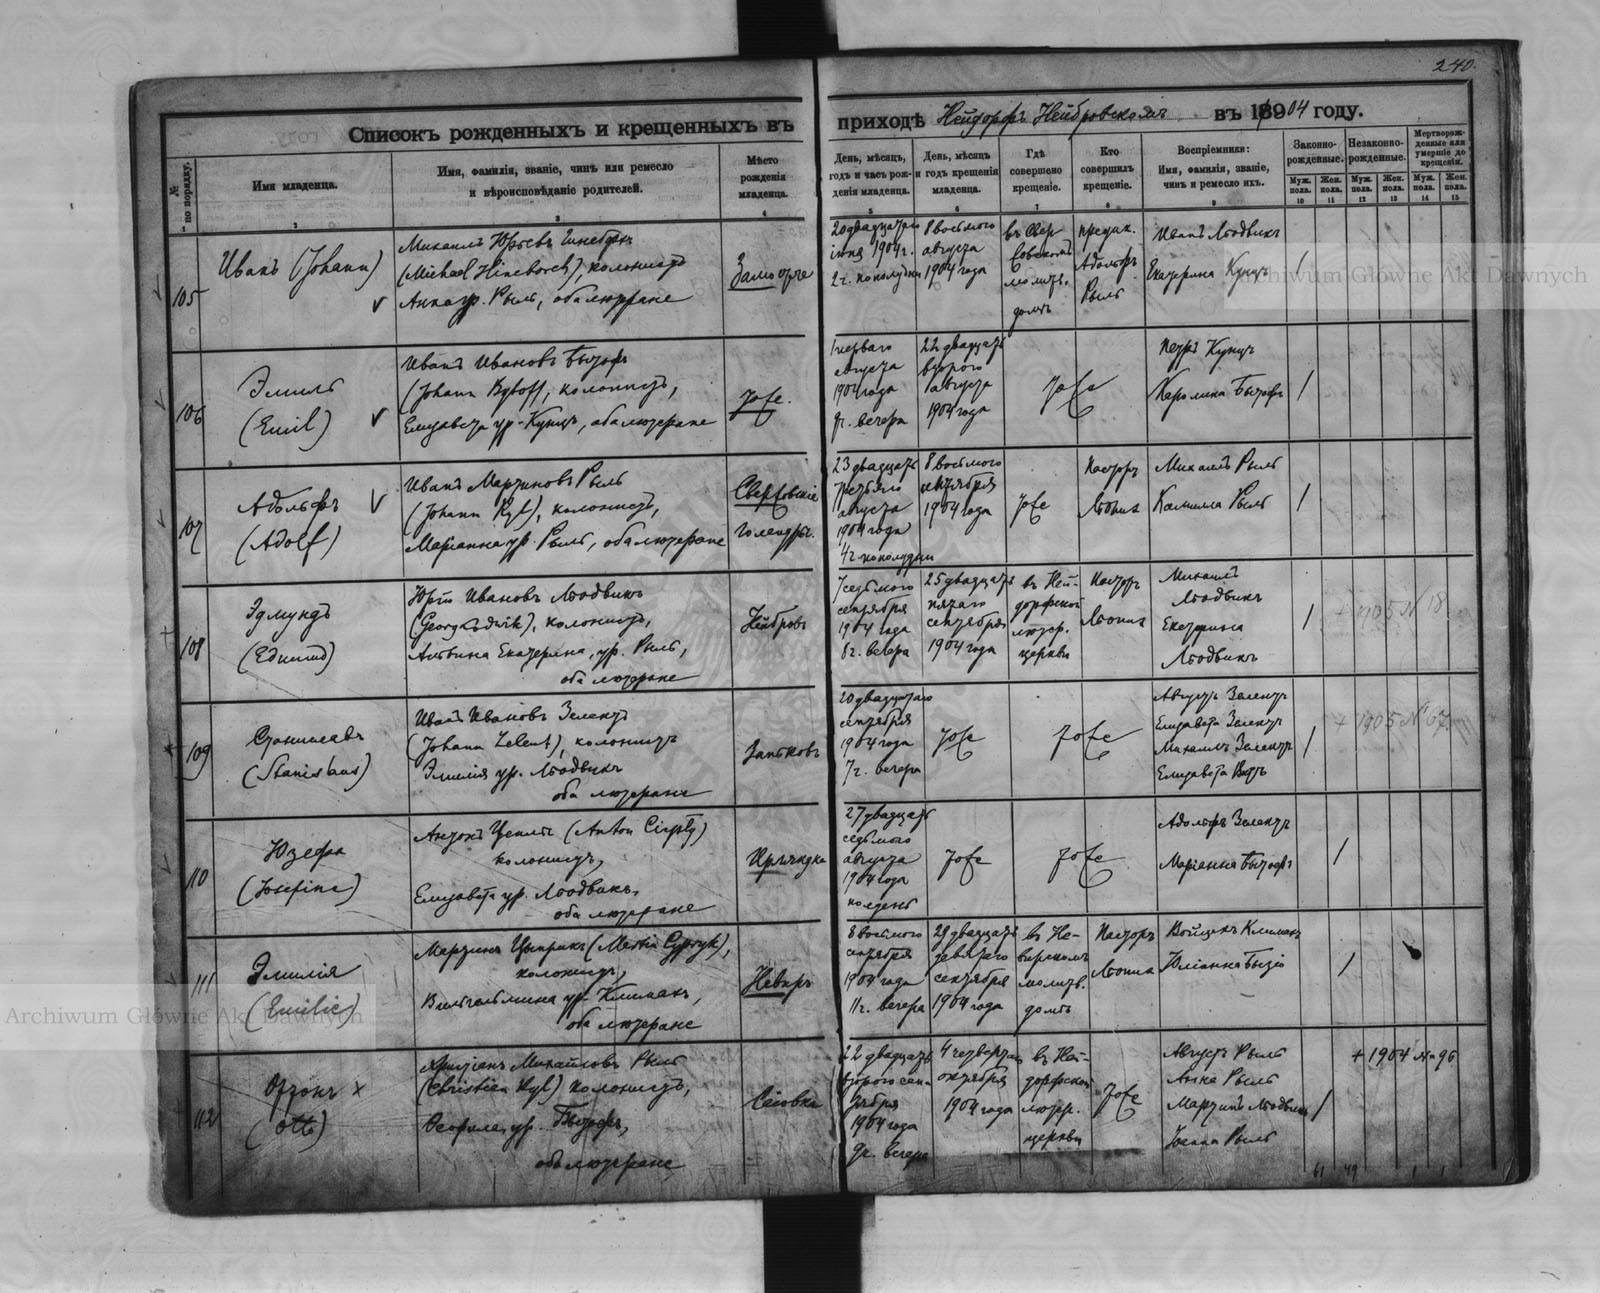 240.
Списокъ рожденныхъ и крещенныхъ въ приходѣ Нейдорфъ Нейбровскомъ въ 1904 году.
№ по порядку.
Имя младенца.
Имя, фамилія, званіе, чинъ или ремесло и вѣроисповѣданіе родителей.
Мѣсто рожденія младенца.
День, мѣсяцъ, годъ и часъ рожденія младенца.
День, мѣсяцъ и годъ крещенія младенца.
Гдѣ совершено крещеніе.
Кто совершилъ крещеніе.
Воспріемники: Имя, фамилія, званіе, чинъ и ремесло ихъ.
Законнорожденные.
Незаконнорожденные.
Мертворожденные или умершіе до крещенія.
Муж. пола. Жен. пола. Муж. пола. Жен. пола. Муж. пола. Жен. пола.
1 2 3 4 5 6 7 8 9 10 11 12 13 14 15
105
Иванъ (Johann)
Михаилъ Юрьевъ
(Michael Hineborch), колонистъ
Анна ур. Рыль, оба лютеране
Замостче
20 двадцатаго
іюня 1904 г.
2 ч. пополудни
8 восьмого
августа
1904 года
въ Свер
жовскомъ
молитв.
домѣ
Адольфъ
Рыль
Иванъ Людвикъ
Екатерина Кунцъ
/
106
Эмиль
(Emil)
Иванъ Ивановъ Бытофъ
(Johann Bytoff), колонистъ,
Елизавета ур. Кунцъ, оба лютеране
Тоже.
1 перваго
августа
1904 года
9 ч. вечера
22 двадцать
второго
августа
1904 года
Тоже
Петръ Кунцъ
Каролина Бытофъ
/
107
Адольфъ
(Adolf)
Иванъ Мартиновъ Рыль
(Johann Ryl), колонистъ,
Маріанна ур. Рыль, оба лютеране
Свержовскіе
голендры.
23 двадцать
третьяго
августа
1904 года
4 ч. пополудни
8 восьмого
октября
1904 года
Тоже
Пасторъ
Михаилъ Рыль
Камилла Рыль
/
108
Эдмундъ
(Edmund)
Юрій Ивановъ Людвикъ
(Georg Ludwik), колонистъ,
Альвина Екатерина, ур. Рыль,
оба лютеране
Нейбровъ
7 седьмого
сентября
1904 года
8 ч. вечера
25 двадцать
пятаго
сентября
1904 года
въ Ней-
дорфской
лютер.
церкви
Пасторъ
Михаилъ
Людвикъ
Екатерина
Людвикъ
/
+ 1905 № 18
109
Станиславъ
(Stanislaus)
Иванъ Ивановъ Зелентъ
(Johann Zelent), колонистъ
Эмилія ур. Людвикъ
оба лютеране
Заньковъ
20 двадцатаго
сентября
1904 года
7 ч. вечера
Тоже
Тоже
Августъ Зелентъ
Елизавета Зелентъ
Михаилъ Зелентъ
Елизавета
/
+ 1905 № 67
110
Юзефа
(Josefine)
Антонъ (Anton)
колонистъ,
Елизавета ур. Людвикъ,
оба лютеране
27 двадцать
седьмого
августа
1904 года
полдень
Тоже
Тоже
Адольфъ Зелентъ
Маріанна Бытофъ
/
111
Эмилія
(Emilie)
Мартинъ Цыприкъ (Martin Cypryk),
колонистъ,
Вильгельмина ур. Климакъ,
оба лютеране
Невиръ
8 восьмого
сентября
1904 года
11 ч. вечера
29 двадцать
девятаго
сентября
1904 года
въ Не-
вирскомъ
молитв.
домѣ
Пасторъ
Войцехъ Климакъ
Юліанна
/
112
Оттонъ
(Otto)
Христіанъ Михайловъ Рыль
(Christian Ryl) колонистъ,
ур. Бытофъ,
оба лютеране
22 двадцать
второго сен-
тября
1904 года
9 ч. вечера
4 четвертаго
октября
1904 года
въ Ней-
дорфской
лютер.
церкви
Тоже
Августъ Рыль
Анна Рыль
Мартинъ Людвикъ
Рыль
/
+ 1904 № 96
61 49 1 1
Archiwum Główne Akt Dawnych
Archiwum Główne Akt Dawnych